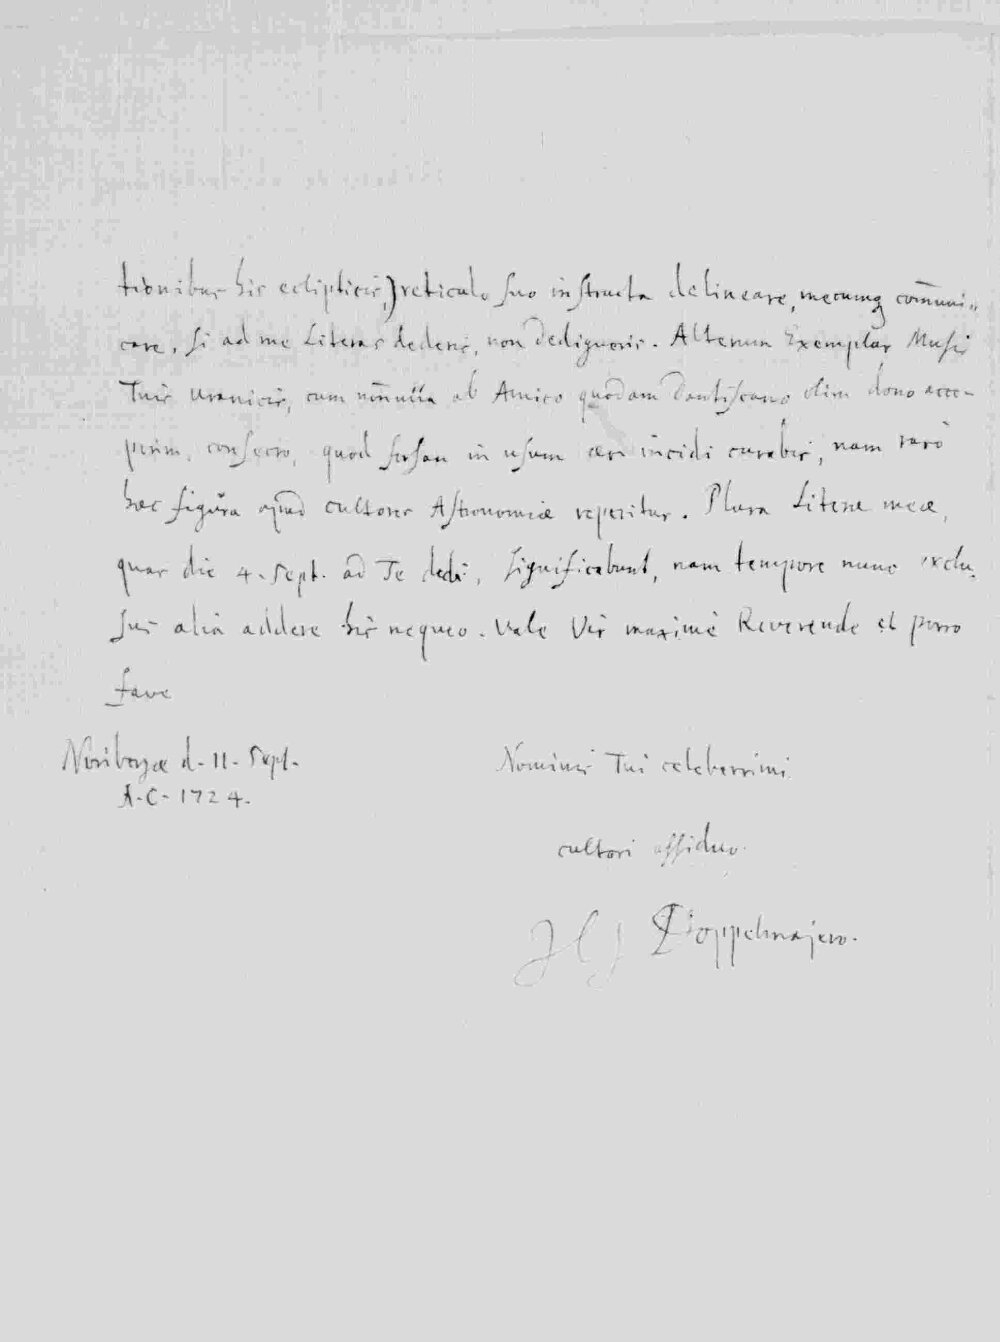 tionibus his eclipticis,) reticulo suo instructa delineare, mecumq com̄uni=
care, si ad me Literas dederis, non dedigneris. Alterum Exemplar Musis
Tuis Uranicis, cum ab Amico quodam Dantiscano olim dono acce-
perim, consecro, quod forsan in usum aeri incidi curabis, nam raro
haec figura apud cultores Astronomiae reperitur. Plura Literae meae,
quas die 4. Sept. ad Te dedi, significabunt, nam tempore nunc exclu=
sus alia addere his nequeo. Vale Vir maximè Reverende et porro
fave
Noribergae d. 11. Sept.
A. C. 1724.
Nominis Tui celeberrimi
cultori assiduo
J G Doppelmajero.